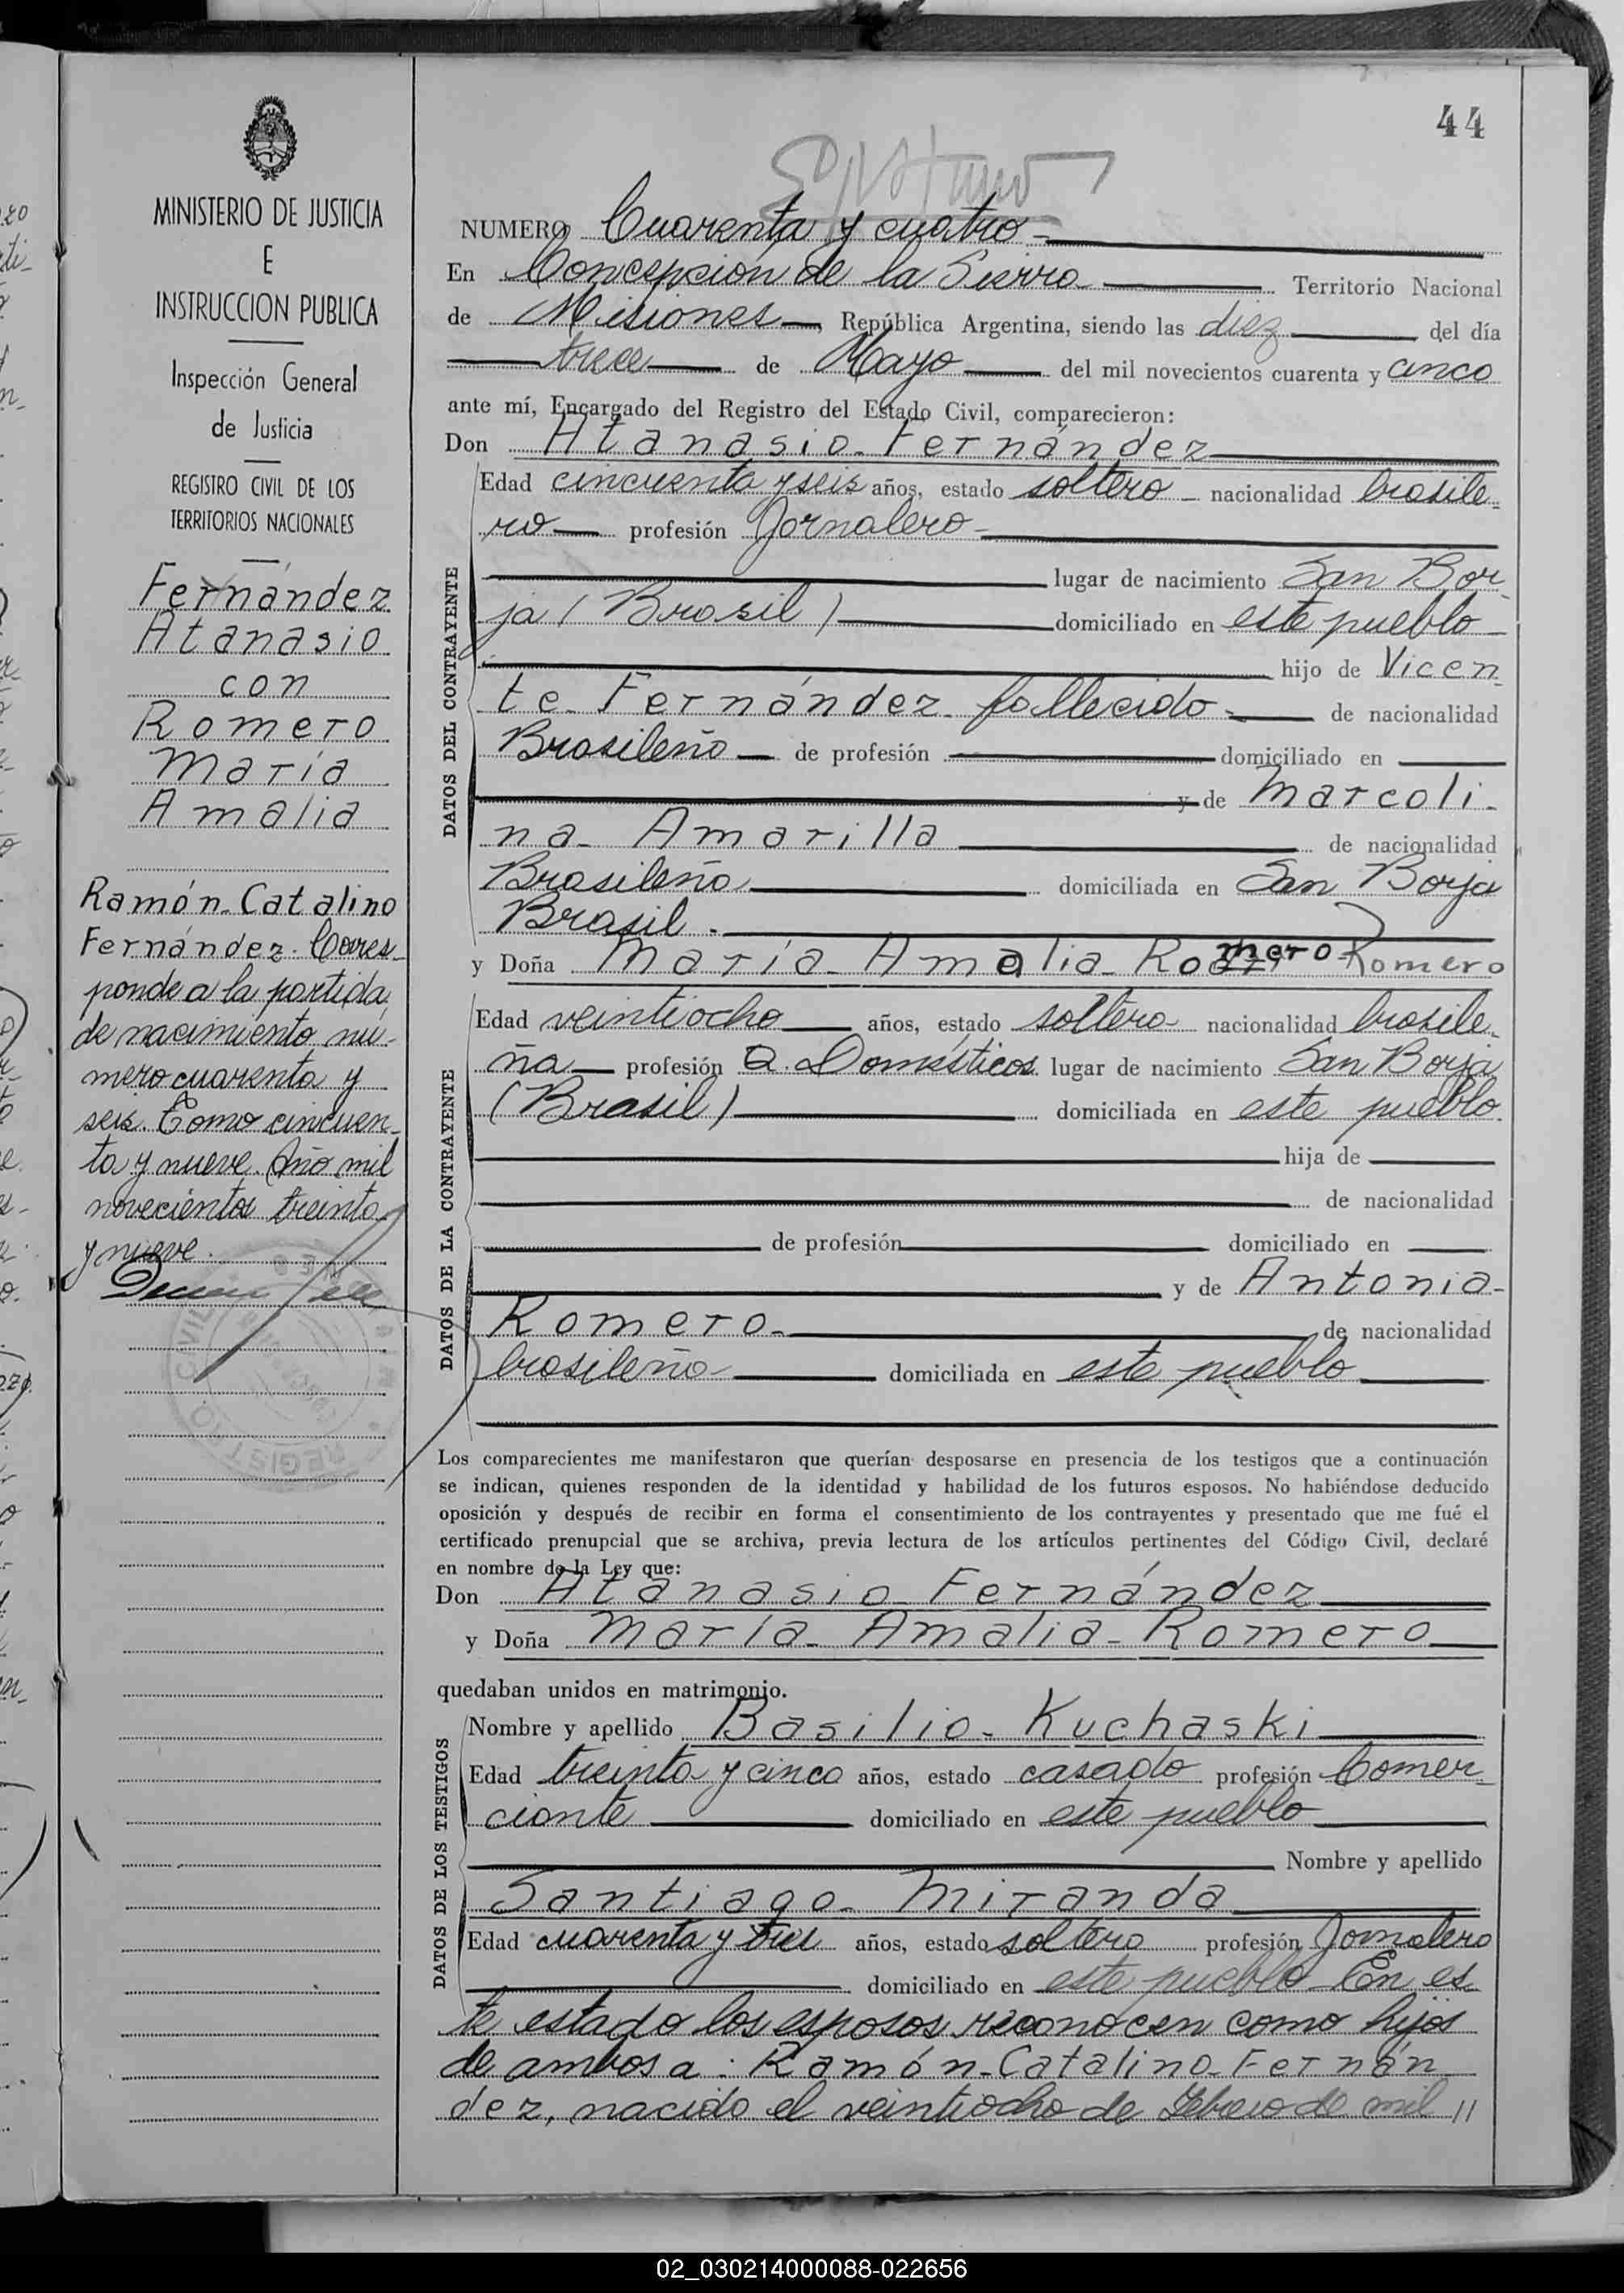 MINISTERIO DE JUSTICIA
E
INSTRUCCION PUBLICA
Inspección General
de Justicia
REGISTRO CIVIL DE LOS
TERRITORIOS NACIONALES
Fernández
Atanasio
con
Romero
María
Amalia
Ramón Catalino
Fernández. Corres-
ponde a la partida
de nacimiento nú-
mero cuarenta y
seis. Tomo cincuen-
ta y nueve. Año mil
novecientos treinta
y nueve.
44
NUMERO Cuarenta y cuatro
En Concepción de la Sierra Territorio Nacional
de Misiones, República Argentina, siendo las diez del día
trece de Mayo del mil novecientos cuarenta y cinco
ante mí, Encargado del Registro del Estado Civil, comparecieron:
Don Atanasio Fernández
DATOS DEL CONTRAYENTE
Edad cincuenta y seis años, estado soltero nacionalidad brasile-
ro profesión Jornalero
lugar de nacimiento San Bor
ja (Brasil) domiciliado en este pueblo
hijo de Vicen
te Fernández fallecido de nacionalidad
Brasileño de profesión domiciliado en
y de Marcoli-
na Amarilla de nacionalidad
Brasileña domiciliada en San Borja
Brasil.
y Doña María Amalia Romero Romero
DATOS DE LA CONTRAYENTE
Edad veintiocho años, estado soltera nacionalidad brasile-
ña profesión Q. Domésticos lugar de nacimiento San Borja
(Brasil) domiciliada en este pueblo
hija de
de nacionalidad
de profesión domiciliado en
y de Antonia
Romero de nacionalidad
brasileña domiciliada en este pueblo
Los comparecientes me manifestaron que querían desposarse en presencia de los testigos que a continuación
se indican, quienes responden de la identidad y habilidad de los futuros esposos. No habiéndose deducido
oposición y después de recibir en forma el consentimiento de los contrayentes y presentado que me fué el
certificado prenupcial que se archiva, previa lectura de los artículos pertinentes del Código Civil, declaré
en nombre de la Ley que:
Don Atanasio Fernández
y Doña María Amalia Romero
quedaban unidos en matrimonio.
DATOS DE LOS TESTIGOS
Nombre y apellido Basilio Kuchaski
Edad treinta y cinco años, estado casado profesión Comer-
ciante domiciliado en este pueblo
Nombre y apellido
Santiago Miranda
Edad cuarenta y tres años, estado soltero profesión Jornalero
domiciliado en este pueblo En es
te estado los esposos reconocen como hijos
de ambos a: Ramón Catalino Fernán
dez, nacido el veintiocho de Febrero de mil //
02_030214000088-022656